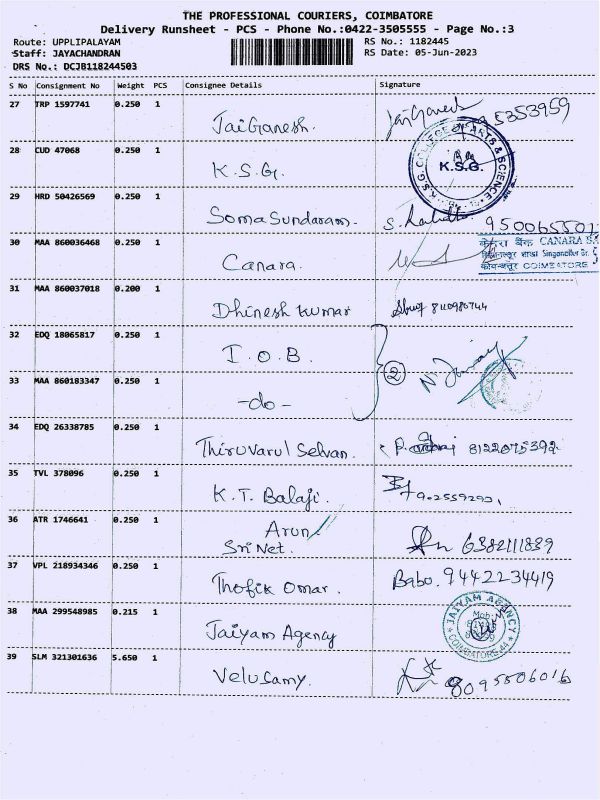 THE PROFESSIONAL COURIERS, COIMBATORE
Delivery Runsheet - PCS - Phone No.:0422-3505555 - Page No.:3
Route: UPPLIPALAYAM RS No.: 1182445
Staff: JAYACHANDRAN RS Date: 05-Jun-2023
DRS No.: DCJB118244503
S No Consignment No Weight PCS Consignee Details Signature
27 TRP 1597741 0.250 1
Jai Ganesh. 5353959
28 CUD 47068 0.250 1
K.S.G. K.S.G. COLLEGE OF ARTS & SCIENCE K.S.G.
29 HRD 50426569 0.250 1
Soma Sundaram.
30 MAA 860036468 0.250 1
Canara. केनरा बैंक CANARA
COIMBATORE
31 MAA 860037018 0.200 1
Dhinesh kumar 8110980744
32 EDQ 18065817 0.250 1
I.O.B. 2
33 MAA 860183347 0.250 1
-do-
34 EDQ 26338785 0.250 1
Thiruvarul Selvan. 8122075392
35 TVL 378096 0.250 1
K.T. Balaji.
36 ATR 1746641 0.250 1
Arun
Sri Net. 6382111839
37 VPL 218934346 0.250 1
Thofik Omar. Babo. 9442234419
38 MAA 299548985 0.215 1
Jaiyam Agency JAIYAM AGENCY COIMBATORE-44
39 SLM 321301636 5.650 1
Velusamy. 8095506016